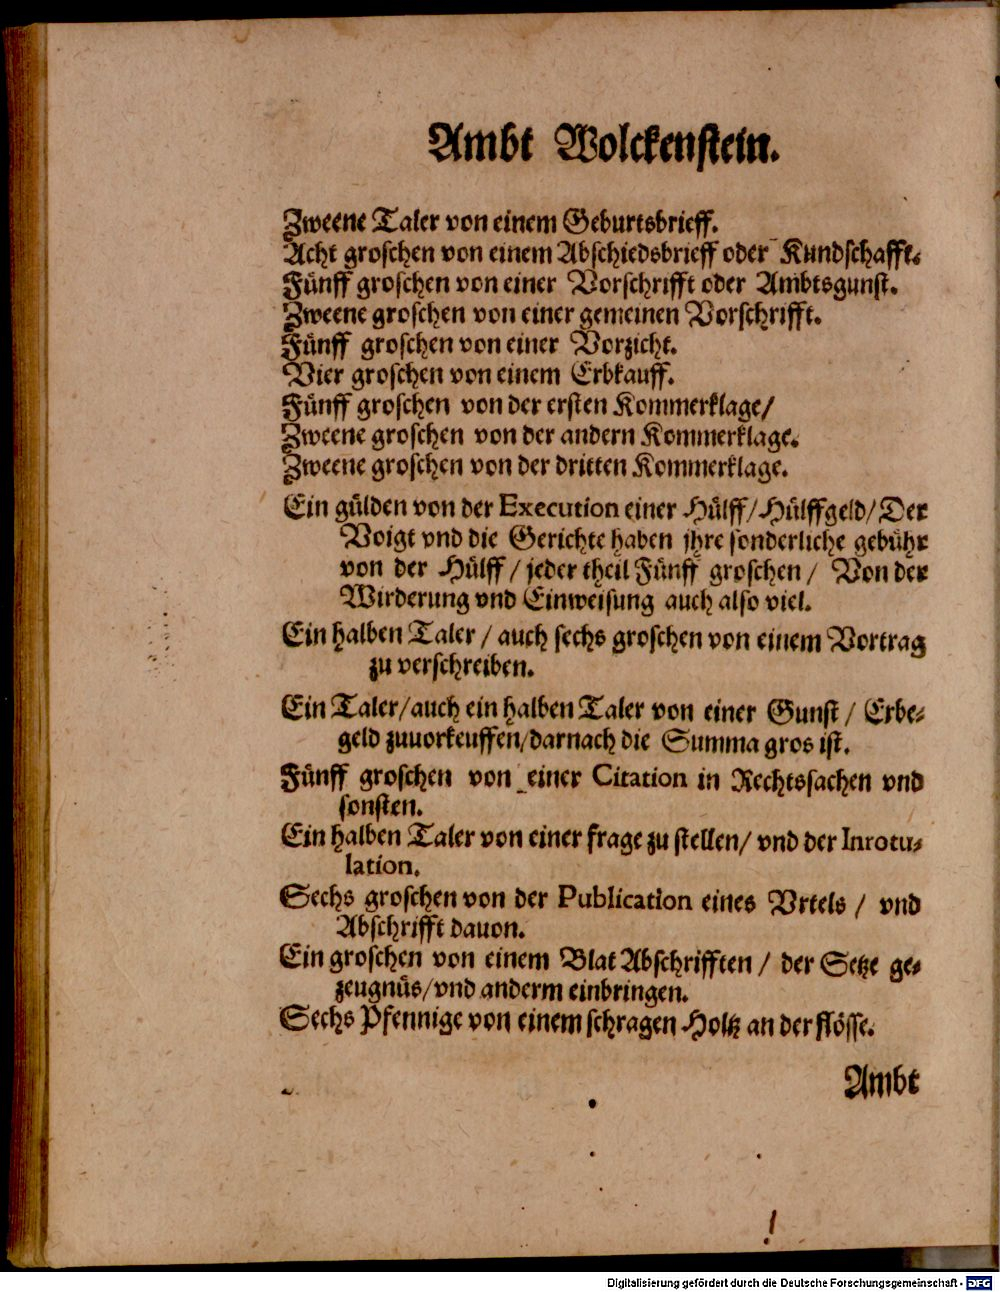 Ambt Wolckenstein.
Zweene Taler von einem Geburtsbrieff.
Acht groschen von einem Abschiedsbrieff oder Kundschafft.
Fünff groschen von einer Vorschrifft oder Ambtsgunst.
Zweene groschen von einer gemeinen Vorschrifft.
Fünff groschen von einer Vorzicht.
Vier groschen von einem Erbkauff.
Fünff groschen von der ersten Kommerklage/
Zweene groschen von der andern Kommerklage.
Zweene groschen von der dritten Kommerklage.
Ein gülden von der Execution einer Hülff/Hülffgeld/Der
Voigt vnd die Gerichte haben jhre sonderliche gebühr
von der Hülff/ jeder theil Fünff groschen/ Von der
Wirderung vnd Einweisung auch also viel.
Ein halben Taler/ auch sechs groschen von einem Vortrag
zu verschreiben.
Ein Taler/auch ein halben Taler von einer Gunst/ Erbe-
geld zuuorkeuffen/darnach die Summa gros ist.
Fünff groschen von einer Citation in Rechtssachen vnd
sonsten.
Ein halben Taler von einer frage zu stellen/ vnd der Inrotu-
lation.
Sechs groschen von der Publication eines Vrtels/ vnd
Abschrifft dauon.
Ein groschen von einem Blat Abschrifften/ der Setze ge-
zeugnüs/vnd anderm einbringen.
Sechs Pfennige von einem schragen Holtz an der flösse.
Ambt
Digitalisierung gefördert durch die Deutsche Forschungsgemeinschaft - DFG